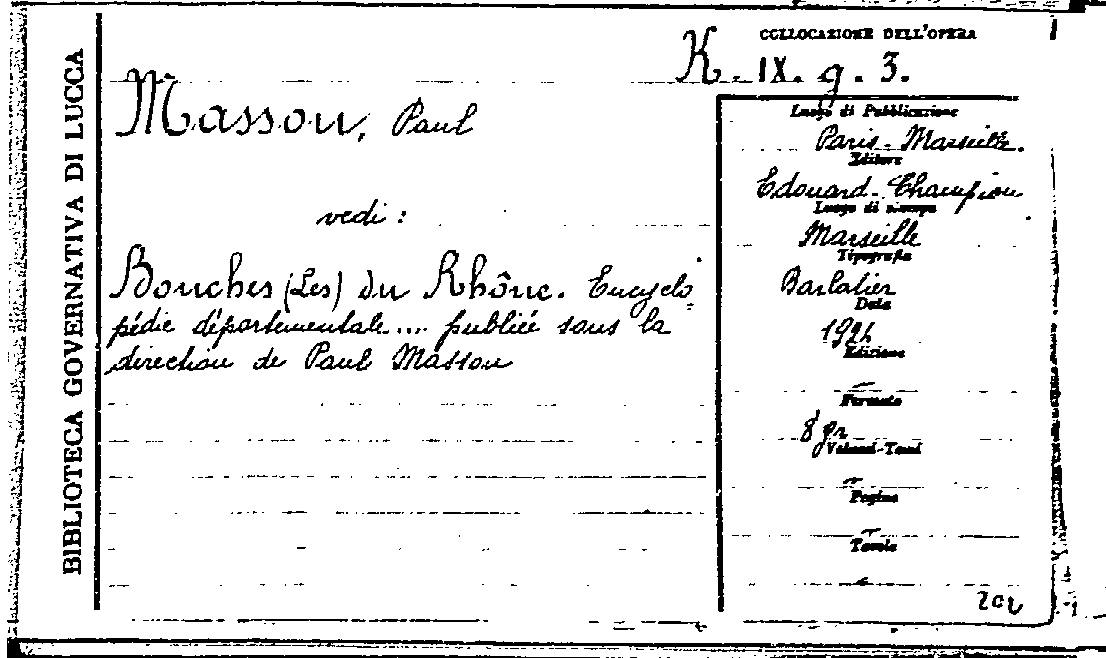 BIBLIOTECA GOVERNATIVA DI LUCCA
COLLOCAZIONE DELL'OPERA
K. IX. g. 3.
Masson, Paul
vedi:
Bouches (Les) du Rhône. Encyclo-
pédie départementale.... publiée sous la
direction de Paul Masson
Luogo di Pubblicazione
Paris-Marseille.
Editore
Edouard-Champion
Luogo di stampa
Marseille
Tipografia
Barlatier
Data
Edizione
Formato
8 gr
Volumi-Tomi
Pagine
Tavole